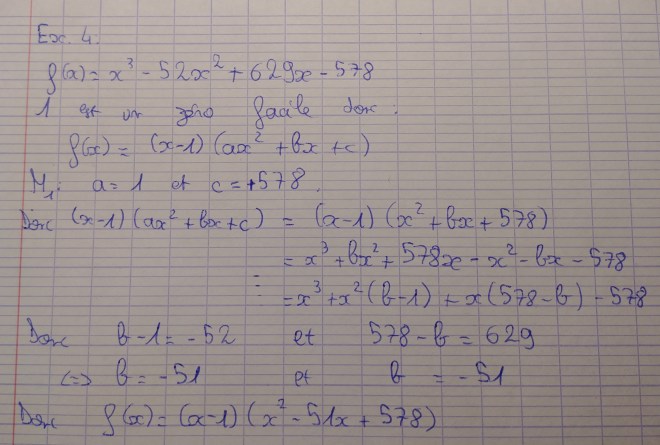 Ex. 4.
f(x) = x³ - 52x² + 629x - 578
1 est un zéro facile donc :
f(x) = (x-1) (ax² + bx + c)
M₁: a = 1 et c = +578.
Donc (x-1) (ax² + bx + c) = (x-1) (x² + bx + 578)
= x³ + bx² + 578x - x² - bx - 578
= x³ + x² (b-1) + x (578 - b) - 578
Donc b - 1 = -52 et 578 - b = 629
<=> b = -51 et b = -51
Donc f(x) = (x-1) (x² - 51x + 578)